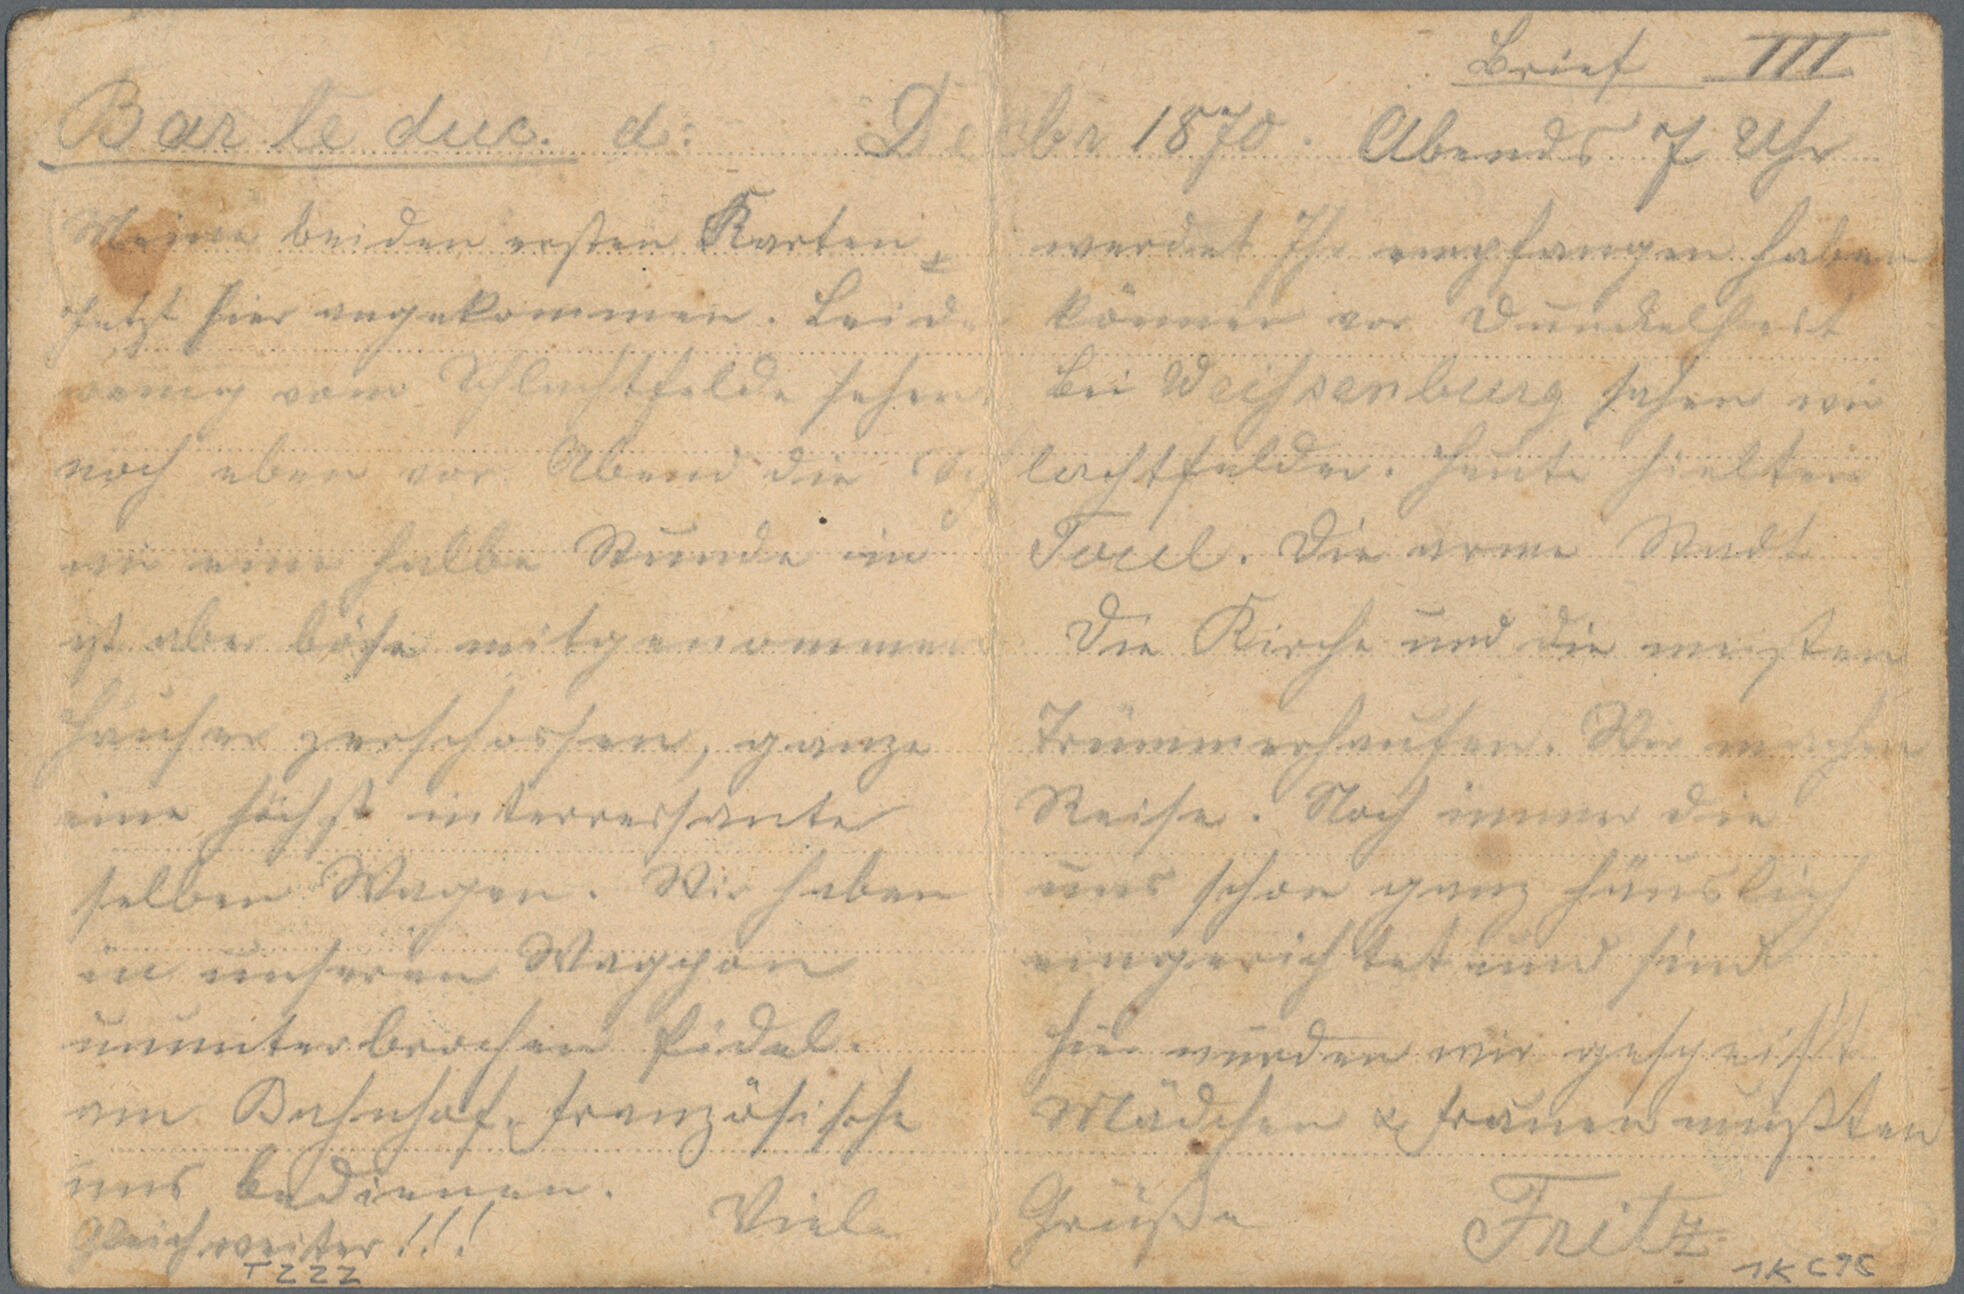 Brief III
Bar le duc. d: Dembr 1870. Abends 7 Uhr
Meine beiden ersten Karten werdet Ihr empfangen haben
Jetzt hier angekommen. Leider können vor Dunckelheit
wenig vom Schlachtfelde sehen. Bei Weihsenburg sahen wir
noch eben vor Abend die Schlachtfelder. Heute hielten
wir eine halbe Stunde in Toul. Die arme Stadt
ist aber böse mitgenommen Die Kirche und die meisten
Häuser zerschossen, ganze Trümmerhaufen. Wir machen
eine höchst interressante Reise. Noch immer die
selben Wagen. Wir haben uns schon ganz häuslich
in unseren Waggon eingerichtet und sind
ununterbrochen fidel. Hier wurden wir gespeist
am Bahnhof, französische Mädchen & Frauen mußten
uns bedienen. Viele Grüße Fritz
Gleich weiter!!!
T 222